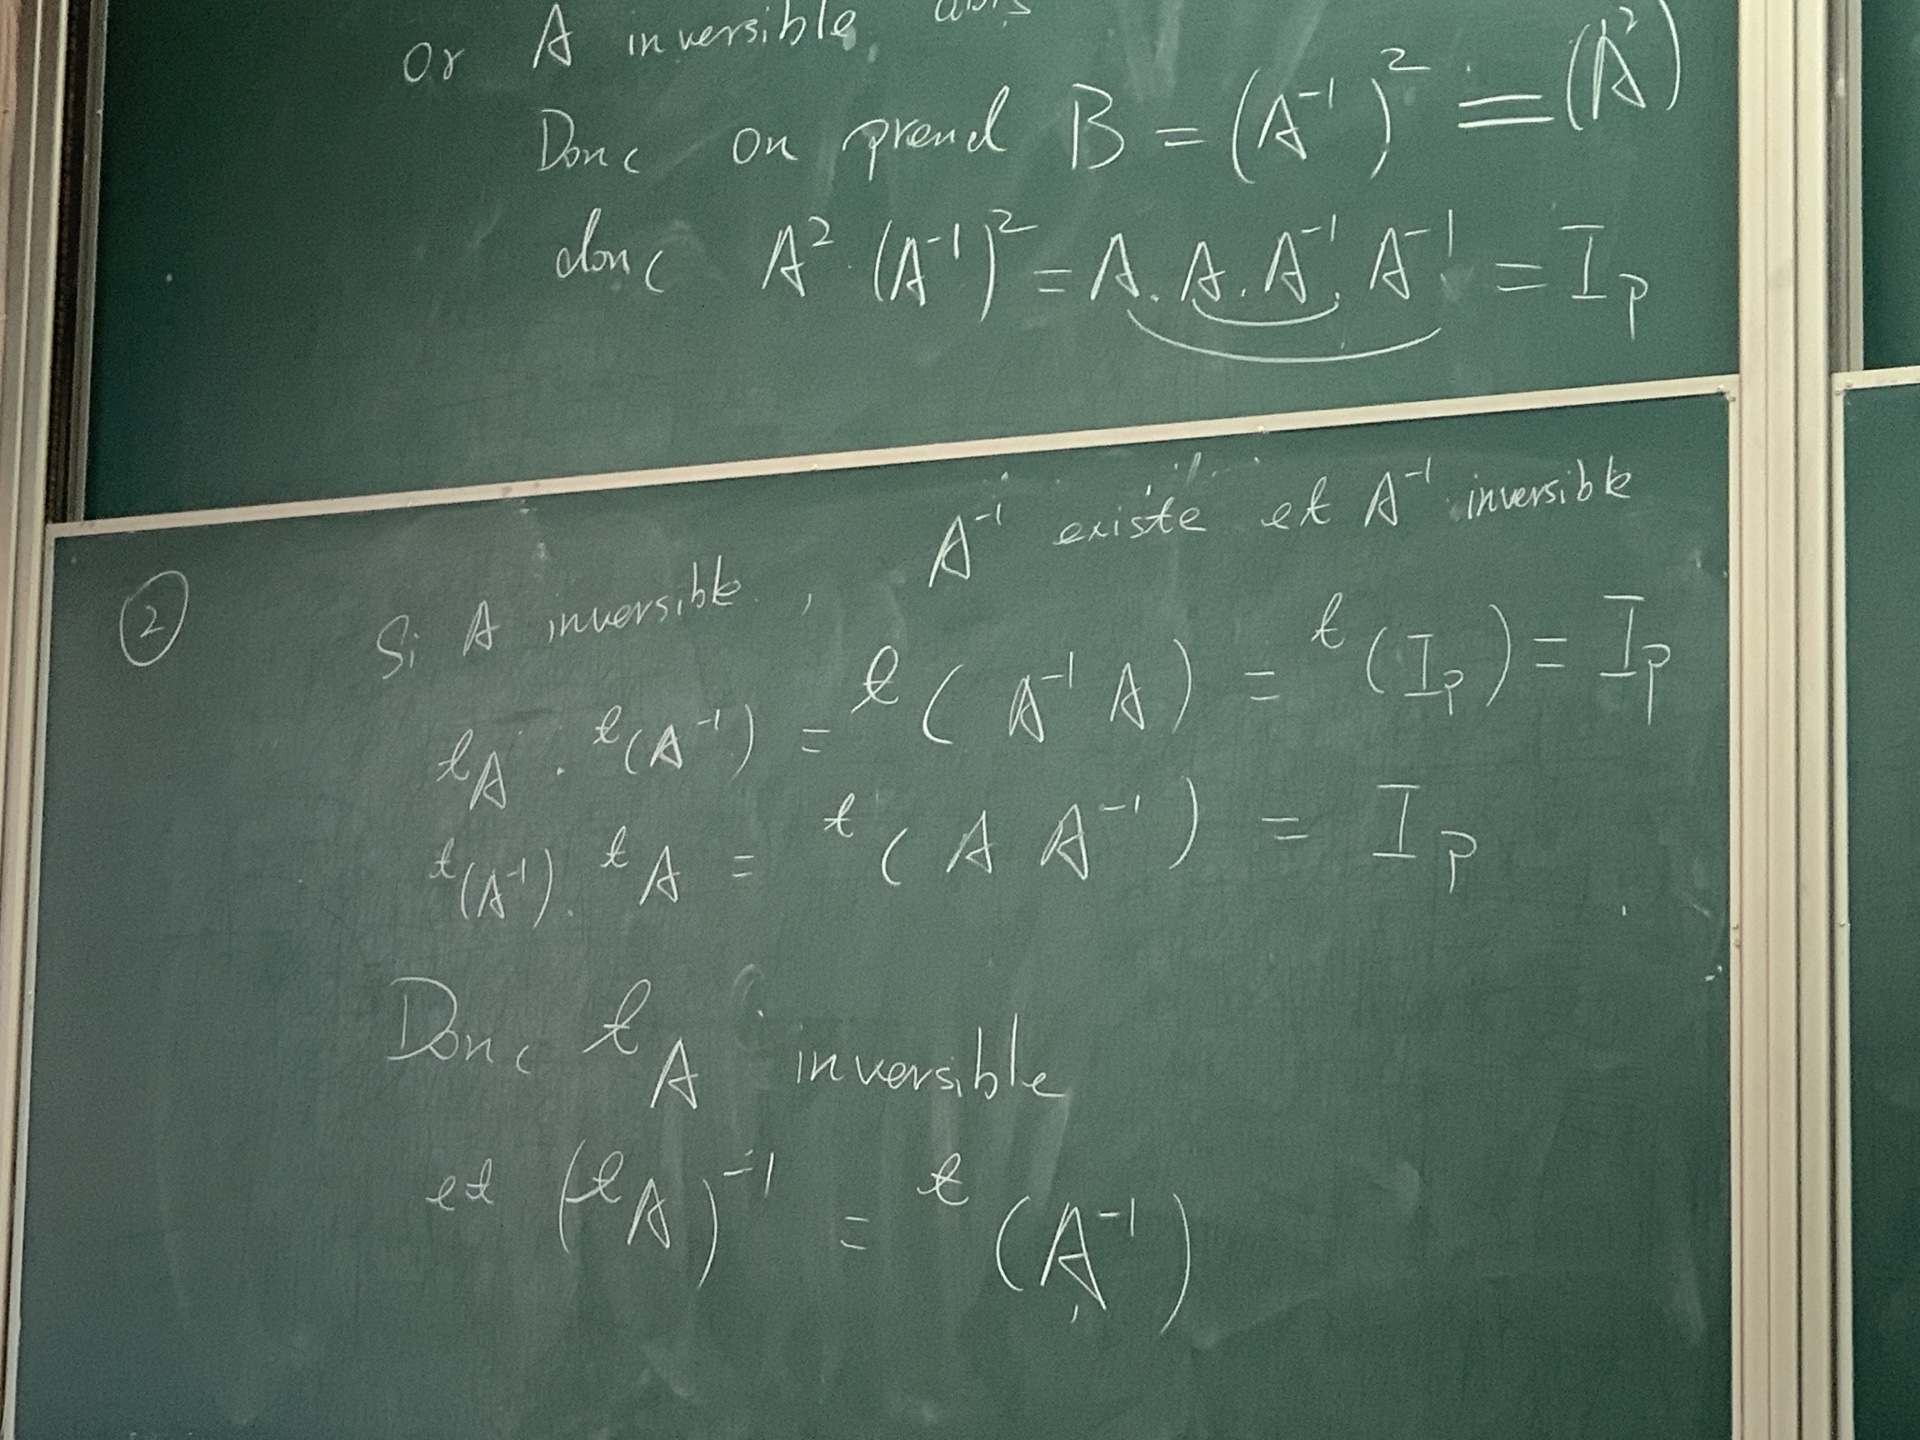 or A inversible,
Donc on prend B = (A⁻¹)² = (A²)
donc A² · (A⁻¹)² = A . A . A⁻¹ . A⁻¹ = Iₚ
② Si A inversible, A⁻¹ existe et A⁻¹ inversible
ᵗA . ᵗ(A⁻¹) = ᵗ(A⁻¹ A) = ᵗ(Iₚ) = Iₚ
ᵗ(A⁻¹) . ᵗA = ᵗ(A A⁻¹) = Iₚ
Donc ᵗA inversible
et (ᵗA)⁻¹ = ᵗ(A⁻¹)